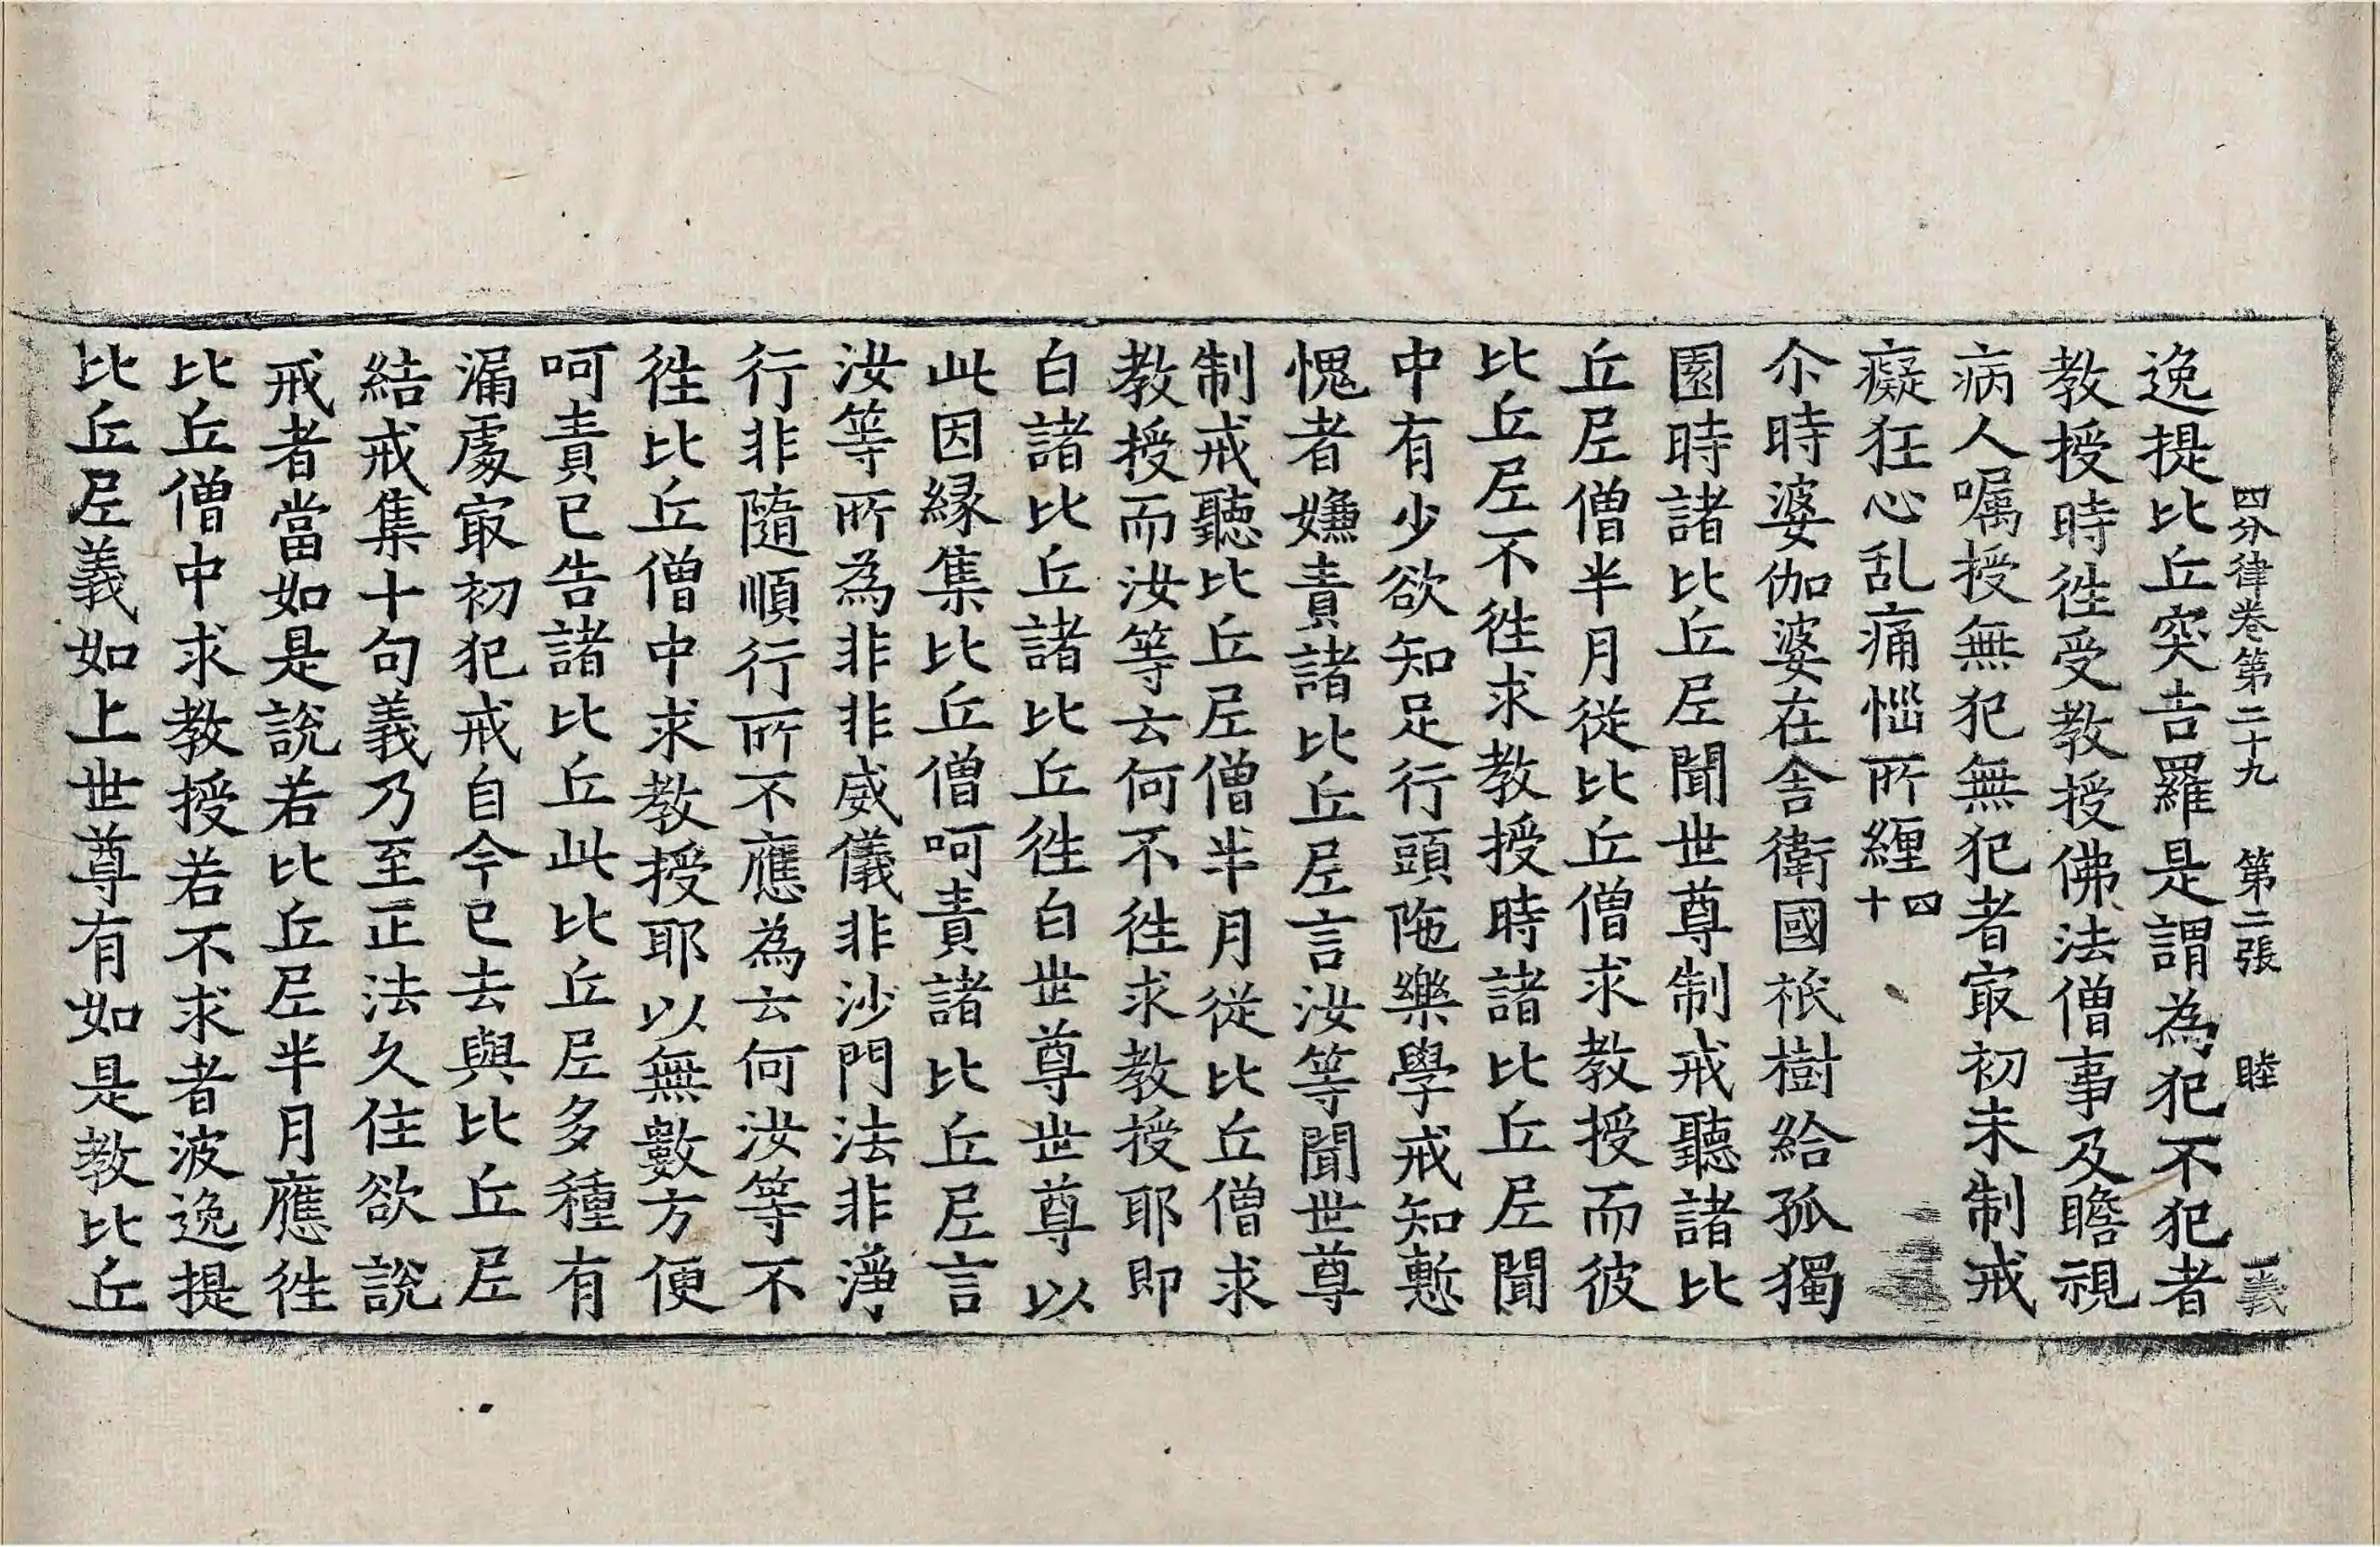 四分律卷第二十九　第二張　睦　義
逸提比丘突吉羅是謂為犯不犯者
教授時徃受教授佛法僧事及瞻視
病人嘱授無犯無犯者㝡初未制戒
癡狂心乱痛惱所纏十四
尒時婆伽婆在舍衛國祇樹給孤獨
園時諸比丘𡰱聞世尊制戒聽諸比
丘𡰱僧半月從比丘僧求教授而彼
比丘𡰱不徃求教授時諸比丘𡰱聞
中有少欲知足行頭陁樂學戒知慙
愧者嫌責諸比丘𡰱言汝等聞世尊
制戒聽比丘𡰱僧半月從比丘僧求
教授而汝等云何不徃求教授耶即
白諸比丘諸比丘徃白世尊世尊以
此因縁集比丘僧呵責諸比丘𡰱言
汝等所為非非威儀非沙門法非淨
行非隨順行所不應為云何汝等不
徃比丘僧中求教授耶以無數方便
呵責已告諸比丘此比丘𡰱多種有
漏處㝡初犯戒自今已去與比丘𡰱
結戒集十句義乃至正法久住欲說
戒者當如是說若比丘𡰱半月應徃
比丘僧中求教授若不求者波逸提
比丘𡰱義如上世尊有如是教比丘